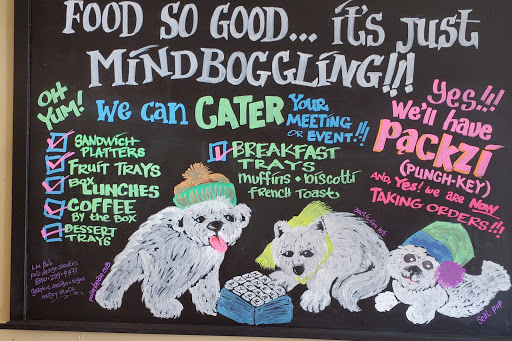 FOOD SO GOOD... it's just
MINDBOGGLING!!!
OH YUM!
We can CATER YOUR MEETING OR EVENT!!
SANDWICH PLATTERS
FRUIT TRAYS
BOX LUNCHES
COFFEE BY THE BOX
DESSERT TRAYS
BREAKFAST TRAYS
muffins • biscotti
french toast
Yes!!!
We'll have
PACKZI
(PUNCH-KEY)
AND, Yes! we are NOW
TAKING ORDERS!!
polar bear cub
arctic fox
Seal pup